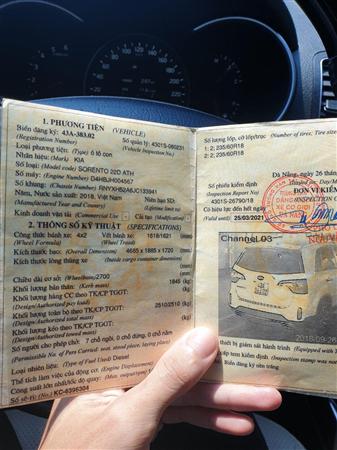 1. PHƯƠNG TIỆN (VEHICLE)
Biển đăng ký: 43A-383.02
(Registration Number)
Số quản lý: 4301S-060231
(Vehicle Inspection No.)
Loại phương tiện: (Type) ô tô con
Nhãn hiệu: (Mark) KIA
Số loại: (Model code) SORENTO 22D ATH
Số máy: (Engine Number) D4HBJH004567
Số khung: (Chassis Number)
Năm, Nước sản xuất: 2018, Việt Nam
(Manufactured Year and Country)
Niên hạn SD:
(Lifetime limit to)
Kinh doanh vận tải (Commercial Use)
Cải tạo (Modification)
2. THÔNG SỐ KỸ THUẬT (SPECIFICATIONS)
Công thức bánh xe: 4x2 Vết bánh xe: 1618/1621 (mm)
(Wheel Formula) (Wheel Tread)
Kích thước bao: (Overall Dimension) 4685 x 1885 x 1720 (mm)
Kích thước lòng thùng xe
(Inside cargo container dimension)
Chiều dài cơ sở: (Wheelbase) 2700 (mm)
Khối lượng bản thân: (Kerb mass) 1845 (kg)
Khối lượng hàng CC theo TK/CP TGGT:
(Design/Authorized pay load)
Khối lượng toàn bộ theo TK/CP TGGT: 2510/2510 (kg)
(Design/Authorized total mass)
Khối lượng kéo theo TK/CP TGGT:
(Design/Authorized towed mass)
Số người cho phép chở: 7 chỗ ngồi, 0 chỗ đứng, 0 chỗ nằm
(Permissible No. of Pers Carried: seat, stood place, laying place)
Loại nhiên liệu: (Type of Fuel Used) Diesel
Thể tích làm việc của động cơ: (Engine Displacement)
Công suất lớn nhất/tốc độ quay:
Số sê-ri: (No.) KC-4396304
Số lượng lốp, cỡ lốp/trục (Number of tires, Tire size
1: 2; 235/60R18
2: 2; 235/60R18
Số phiếu kiểm định
(Inspection Report No)
4301S-26790/18
Có hiệu lực đến hết
25/03/2021
Đà Nẵng, ngày 26 tháng
ĐƠN VỊ KIỂM
Channel 03
2018-09-26
Thiết bị giám sát hành trình (Equipped with
(Inspection stamp was not
Biển đăng ký nền trắng